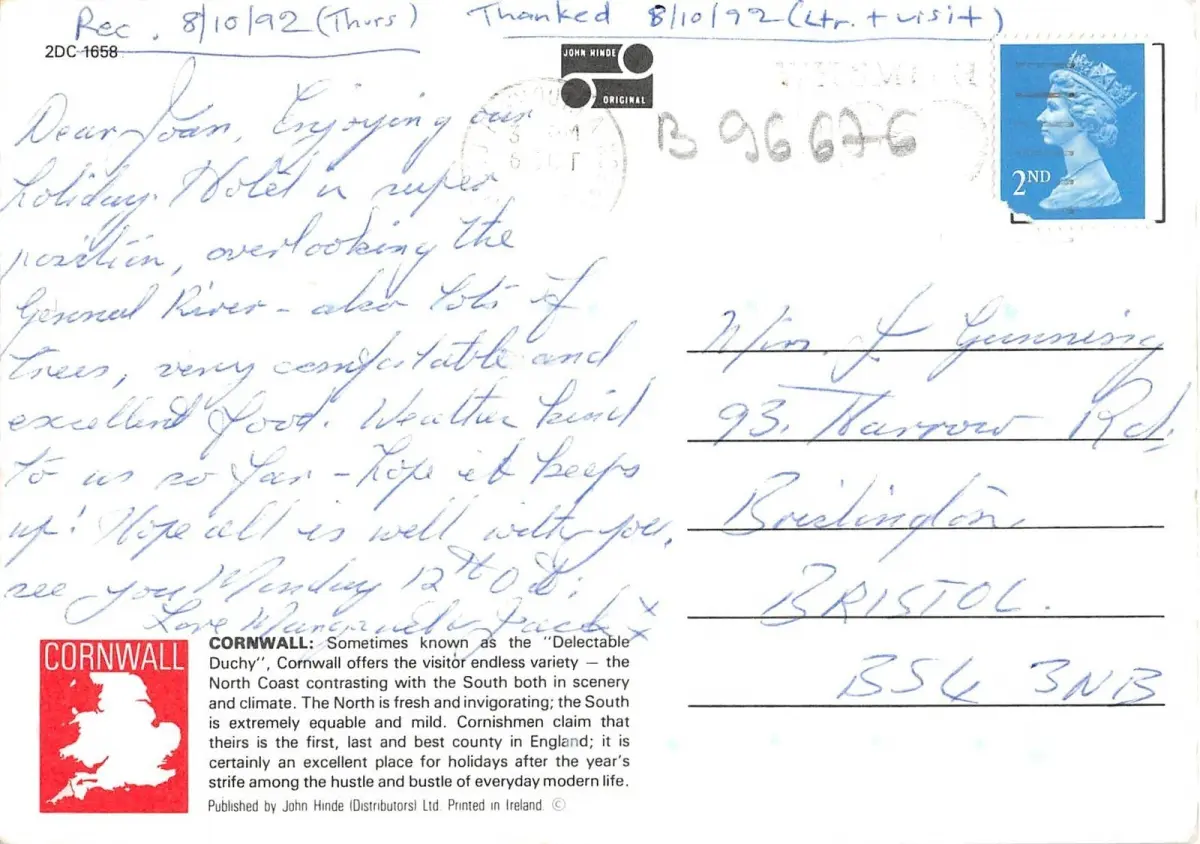 Rec. 8/10/92 (Thurs) Thanked 8/10/92 (Ltr. + visit)
2DC-1658
JOHN HINDE
ORIGINAL
B 96676
2ND
Dear Joan, Enjoying our
holiday. Hotel in super
position, overlooking the
River – also lots of
trees, very comfortable and
excellent food. Weather kind
to us so far – hope it keeps
up! Hope all is well with you,
see you Monday 12th Oct:
Love Margaret & Jack X
X
J Gunning
93. Harrow Rd,
Brislington,
BRISTOL.
BS4 3NB
CORNWALL
CORNWALL: Sometimes known as the "Delectable
Duchy", Cornwall offers the visitor endless variety — the
North Coast contrasting with the South both in scenery
and climate. The North is fresh and invigorating; the South
is extremely equable and mild. Cornishmen claim that
theirs is the first, last and best county in England; it is
certainly an excellent place for holidays after the year's
strife among the hustle and bustle of everyday modern life.
Published by John Hinde (Distributors) Ltd. Printed in Ireland. ©